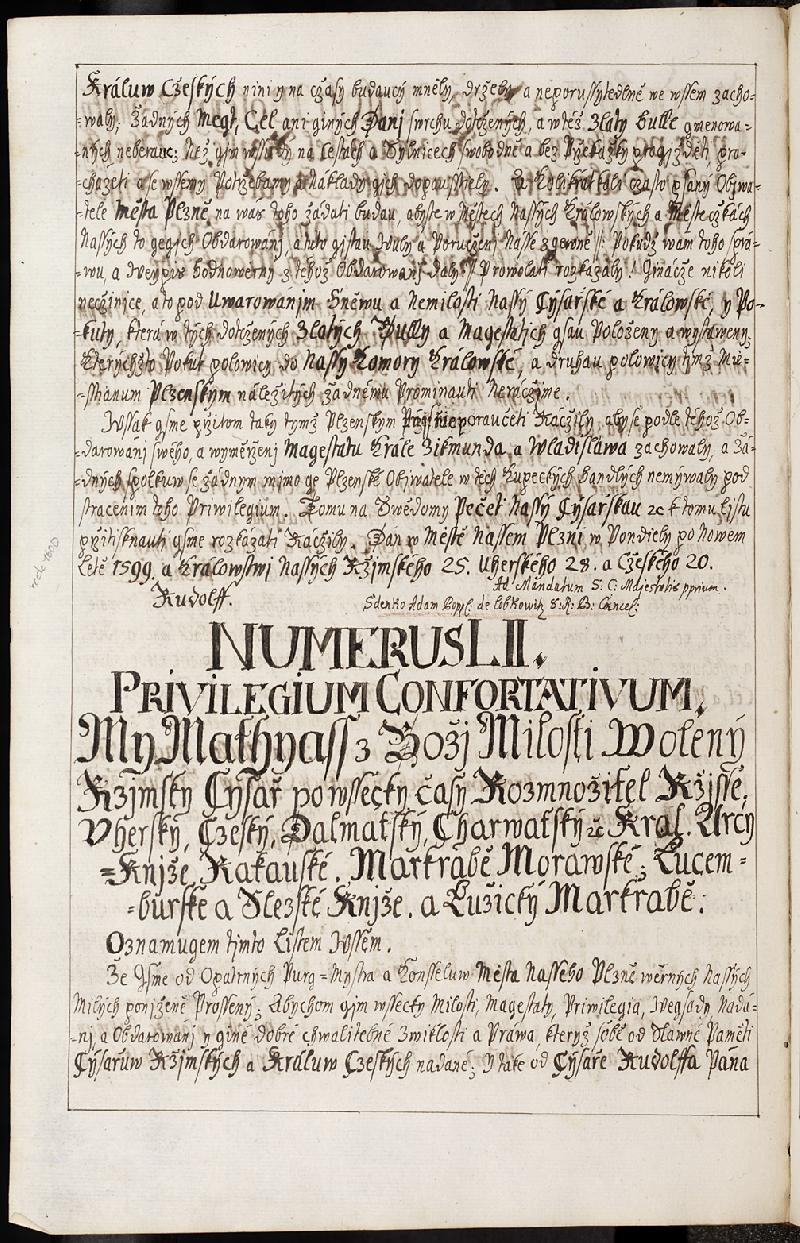 Králuw Cžeských nini y na cžasy budaucý mněly, drželi, a neporussytedlně we wssem zacho-
-waly, Žadných Megt, Cel ani giných Danj swrchu dotčzených, a w též Zlaty Bulle gmenowa-
-ných neberauc; Než gim wssudy na Cestách a Sylnicech swobodně a bez Překažky progžděti, pro-
-chazeti a se wssemy Potřebamy a naklady gich dopausstiely. A když koli cžasto psaný Obywa-
-tele Města Plzně na was toho žádati budau, abyste w Městech Nassých Královských a Městecžkách
Nassých to gegich Obdarowánj, a tuto gistau Wuly a Porucženj Nasse zgewně // Pokudž wám toho sprá-
-wu, a dwey pis hodnowerny z tehož Obdarowanj dály // Prowolati rozkázaly // Ginácže nikoli
necžinjce, a to pod Uwarowánjm Hněwu a Nemilosti Nassý Cýsařské a Královské, y Po-
-kuty, která w tých dotčzených Zlatých Bully a Magestatjch gsau Položeny a wyměřeny
Kterýchžto Pokut polowicy do Nassý Komory Královské, a druhau polowicy týmž Mě-
-sstianum Plzenským náležitých žadnému Prominauti Neráčžjme.
Wssak gsme přitom taky týmž Plzenským poraučeti Ráčžily, aby se podle téhož Ob-
-darowánj swého, a wyměřenj Magestatu Krále Zikmunda, a Wladislawa zachowaly, a Žá-
-dných spolkuw se žádným mimo ge Plzenské Obywatele w těch Kupeckých handlých nemýwaly pod
stracenim toho Priwilegium. Tomu na Swědomy Pečeť Nassý Cýsařskau zc k tomu Listu
přitisknauti gsme rozkázati Ráčžily. Dan w Městě Nassem Plzni w Pondiely po Nowem
Létě 1599. a Kralowstwj Nassých Ržjmského 25. Uherského 28. a Cžeského 20.
Rudolff.
Ad Mandatum S. C. Majestatis pprium.
Sdenko Adam Popl. de Lobkowitz S. R. B. Cancel:
NUMERUS LII.
PRIVILEGIUM CONFORTATIVUM.
My Mathyass z Božj Milosti Wolený
Ržjmský Cýsař po wssecky časy Rozmnožitel Ržjsse,
Vherský, Czeský, Dalmatský, Charwatský zc Kral. Arcy
-Knjže Rakauské, Markrabě Morawské, Lucem-
-burské a Slezské Knjže, a Lužický Markrabě.
Oznamugem tjmto Listem Wssem.
Že Gsme od Opatrných Purg-Mystra a Konsseluw Města Nasseho Plzně wěrných Nassých
Milých ponjženě Prosseny; Abychom gjm wssecky Milosti, Magestaty, Priwilegia, Wegsady, Nadá-
-nj, a Obdarowánj y giné dobré chwalitebné Zwiklosti a Práwa, kteryž sobě od Slawné Paměti
Cýsařuw Ržjmských a Králuw Czeských nadané; Y také od Cýsaře Rudolffa Pana